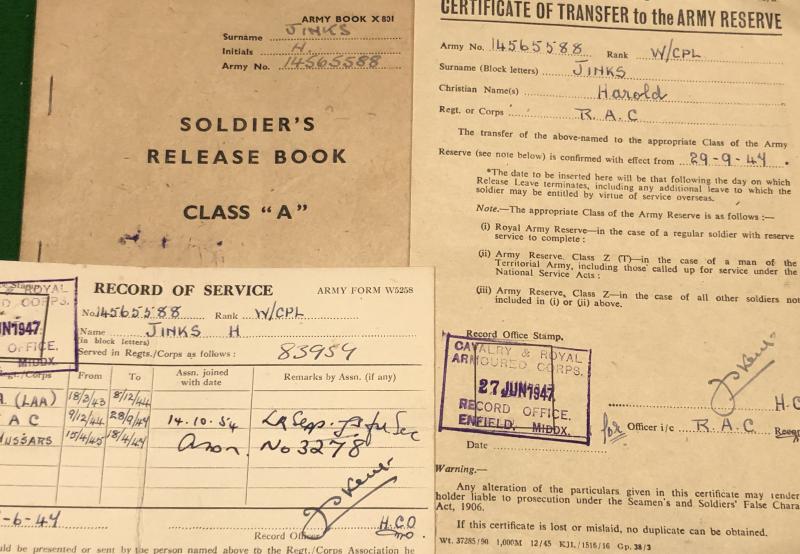 ARMY BOOK X 801
Surname JINKS
Initials H.
Army No. 14565588
SOLDIER'S
RELEASE BOOK
CLASS "A"
CERTIFICATE OF TRANSFER to the ARMY RESERVE
Army No. 14565588 Rank W/CPL
Surname (Block letters) JINKS
Christian Name(s) Harold
Regt. or Corps R.A.C
The transfer of the above-named to the appropriate Class of the Army
Reserve (see note below) is confirmed with effect from 29-9-47.
*The date to be inserted here will be that following the day on which
Release Leave terminates, including any additional leave to which the
soldier may be entitled by virtue of service overseas.
Note.—The appropriate Class of the Army Reserve is as follows :—
(i) Royal Army Reserve—in the case of a regular soldier with reserve
service to complete :
(ii) Army Reserve, Class Z (T)—in the case of a man of the
Territorial Army, including those called up for service under the
National Service Acts :
(iii) Army Reserve, Class Z—in the case of all other soldiers not
included in (i) or (ii) above.
Record Office Stamp.
CAVALRY & ROYAL
ARMOURED CORPS.
27 JUN 1947
RECORD OFFICE,
ENFIELD, MIDDX.
for Officer i/c R.A.C
Date
Warning.—
Any alteration of the particulars given in this certificate may render
holder liable to prosecution under the Seamen's and Soldiers' False Chara
Act, 1906.
If this certificate is lost or mislaid, no duplicate can be obtained.
Wt. 37285/90 1,000M 12/45 KJL/1516/16 Gp. 38/3
& ROYAL
CORPS.
JUN 1947
OFFICE,
MIDDX.
RECORD OF SERVICE ARMY FORM W5258
No. 14565588 Rank W/CPL
Name JINKS H
(in block letters)
Served in Regts./Corps as follows : 83959
Regt./Corps From To Assn. joined with date Remarks by Assn. (if any)
(LAA) 18/2/43 8/12/44
A C 9/12/44 28/9/47 14.10.54
HUSSARS 15/4/45 18/4/47 Assn. No 3278
-6-47
Record Officer H.C.O
ould be presented or sent by the person named above to the Regt./Corps Association he